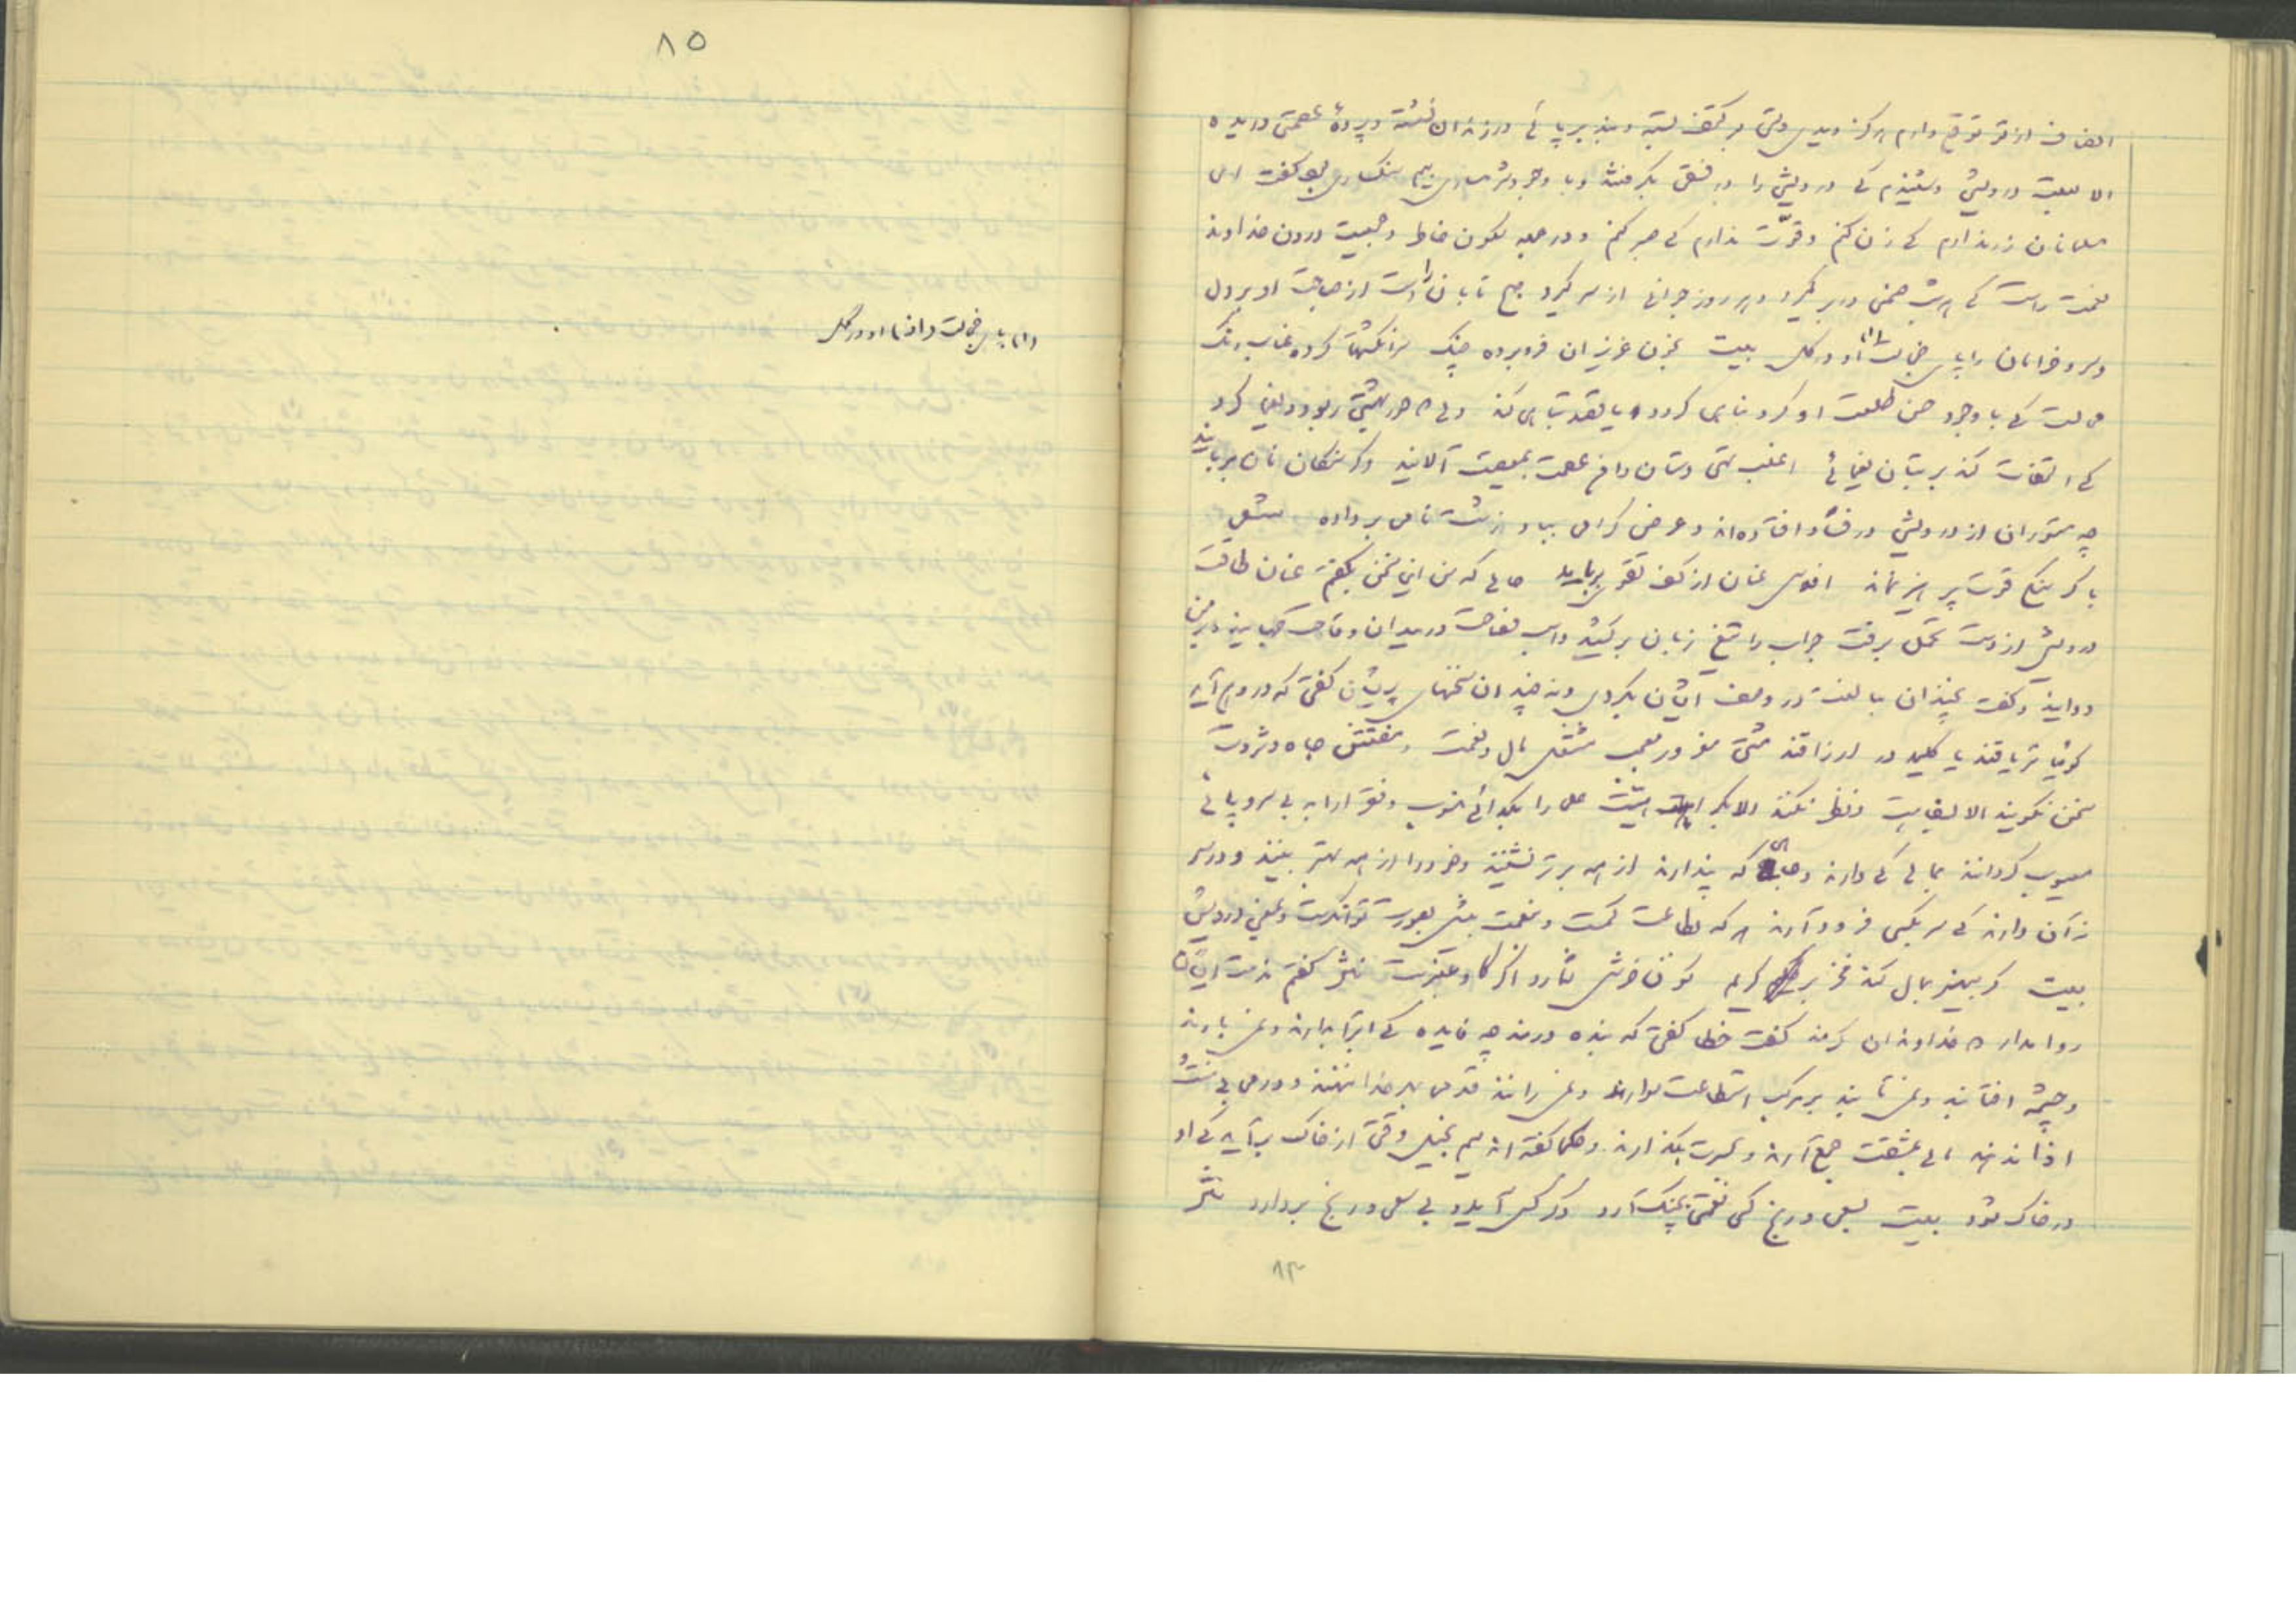 انصاف از تو توقع دارم هرگز دیدی دستی بر کتف بسته و بند بر پائی در زندان نشسته و پردهٔ عصمتی دریده
الا بعلت درویشی و شنیدم که درویشی را در فسقی بگرفتند و با وجود شرمساری بیم سنگساری بود گفت ای
مسلمانان زر ندارم که زن کنم و قوّت ندارم که صبر کنم و در جمله سکون خاطر و جمعیت درون خداوند
نعمت راست که هر شب صنمی در بر گیرد و هر روز جوانی از سر گیرد صبح تابان را دست از صباحت او بر دل
و سرو خرامان را پای خجالت (۱) او در گل بیت بخون عزیزان فرو برده چنگ سر انگشتها کرده عناب رنگ
محالست که با وجود حسن طلعت او گرد مناهی گردد یا قصد تباهی کند دلی که حور بهشتی ربود و یغما کرد
کی التفات کند بر بتان یغمائی اغلب تهی دستان دامن عصمت بمعصیت آلایند و گرسنگان نان بربایند
چه مستوران از درویشی در فساد افتاده‌اند و عرض گرامی بباد زشت نامی بر داده شعر
با گرسنگی قوت پرهیز نماند افلاس عنان از کف تقوی برباید حالی که من این سخن بگفتم عنان طاقت
درویش از دست تحمل برفت جواب را تیغ زبان برکشید و اسب فصاحت در میدان وقاحت جهانید و بر من
دوانید و گفت چندان مبالغت در وصف ایشان بکردی و نه چندان سخنهای پریشان گفتی که در وهم آید
گوئیا تریاقند یا کلید در ارزاقند مشتی مغرور معجب مشتغل مال و نعمت و مفتتن جاه و ثروت
سخن نگویند الا بسفاهت و نظر نکنند الا بکراهت علما را بگدائی منسوب و فقرا را به بی سر و پائی
معیوب گردانند بمالی که دارند و جاهی که پندارند از همه برتر نشینند و خود را از همه بهتر بینند و در سر
نه آن دارند که سر بکسی فرود آرند هر که بطاعت کمست و بنعمت بیش بصورت توانگرست و بمعنی درویش
بیت گر بی‌هنر بمال کند فخر بر حکیم کون خرش شمار و اگر گاو عنبرست نثر گفتم مذمت ایشان
روا مدار که خداوندان کرمند گفت خطا گفتی که بنده درمند چه فایده که ابر آذارند و نمی بارند
و چشمهٔ آفتابند و نمی تابند بر مرکب استطاعت سوارند و نمی رانند قدمی بهر خدا ننهند و درمی بی منت
مالی بمشقت جمع آرند و بحسرت بگذارند و حکما گفته‌اند سیم بخیل وقتی از خاک برآید که او
در خاک شود بیت بسعی و رنج کسی نعمتی بچنگ آرد دگر کس آید و بی سعی و رنج بردارد نثر
۸۴
۸۵
(۱) پای خجالت از او در گل